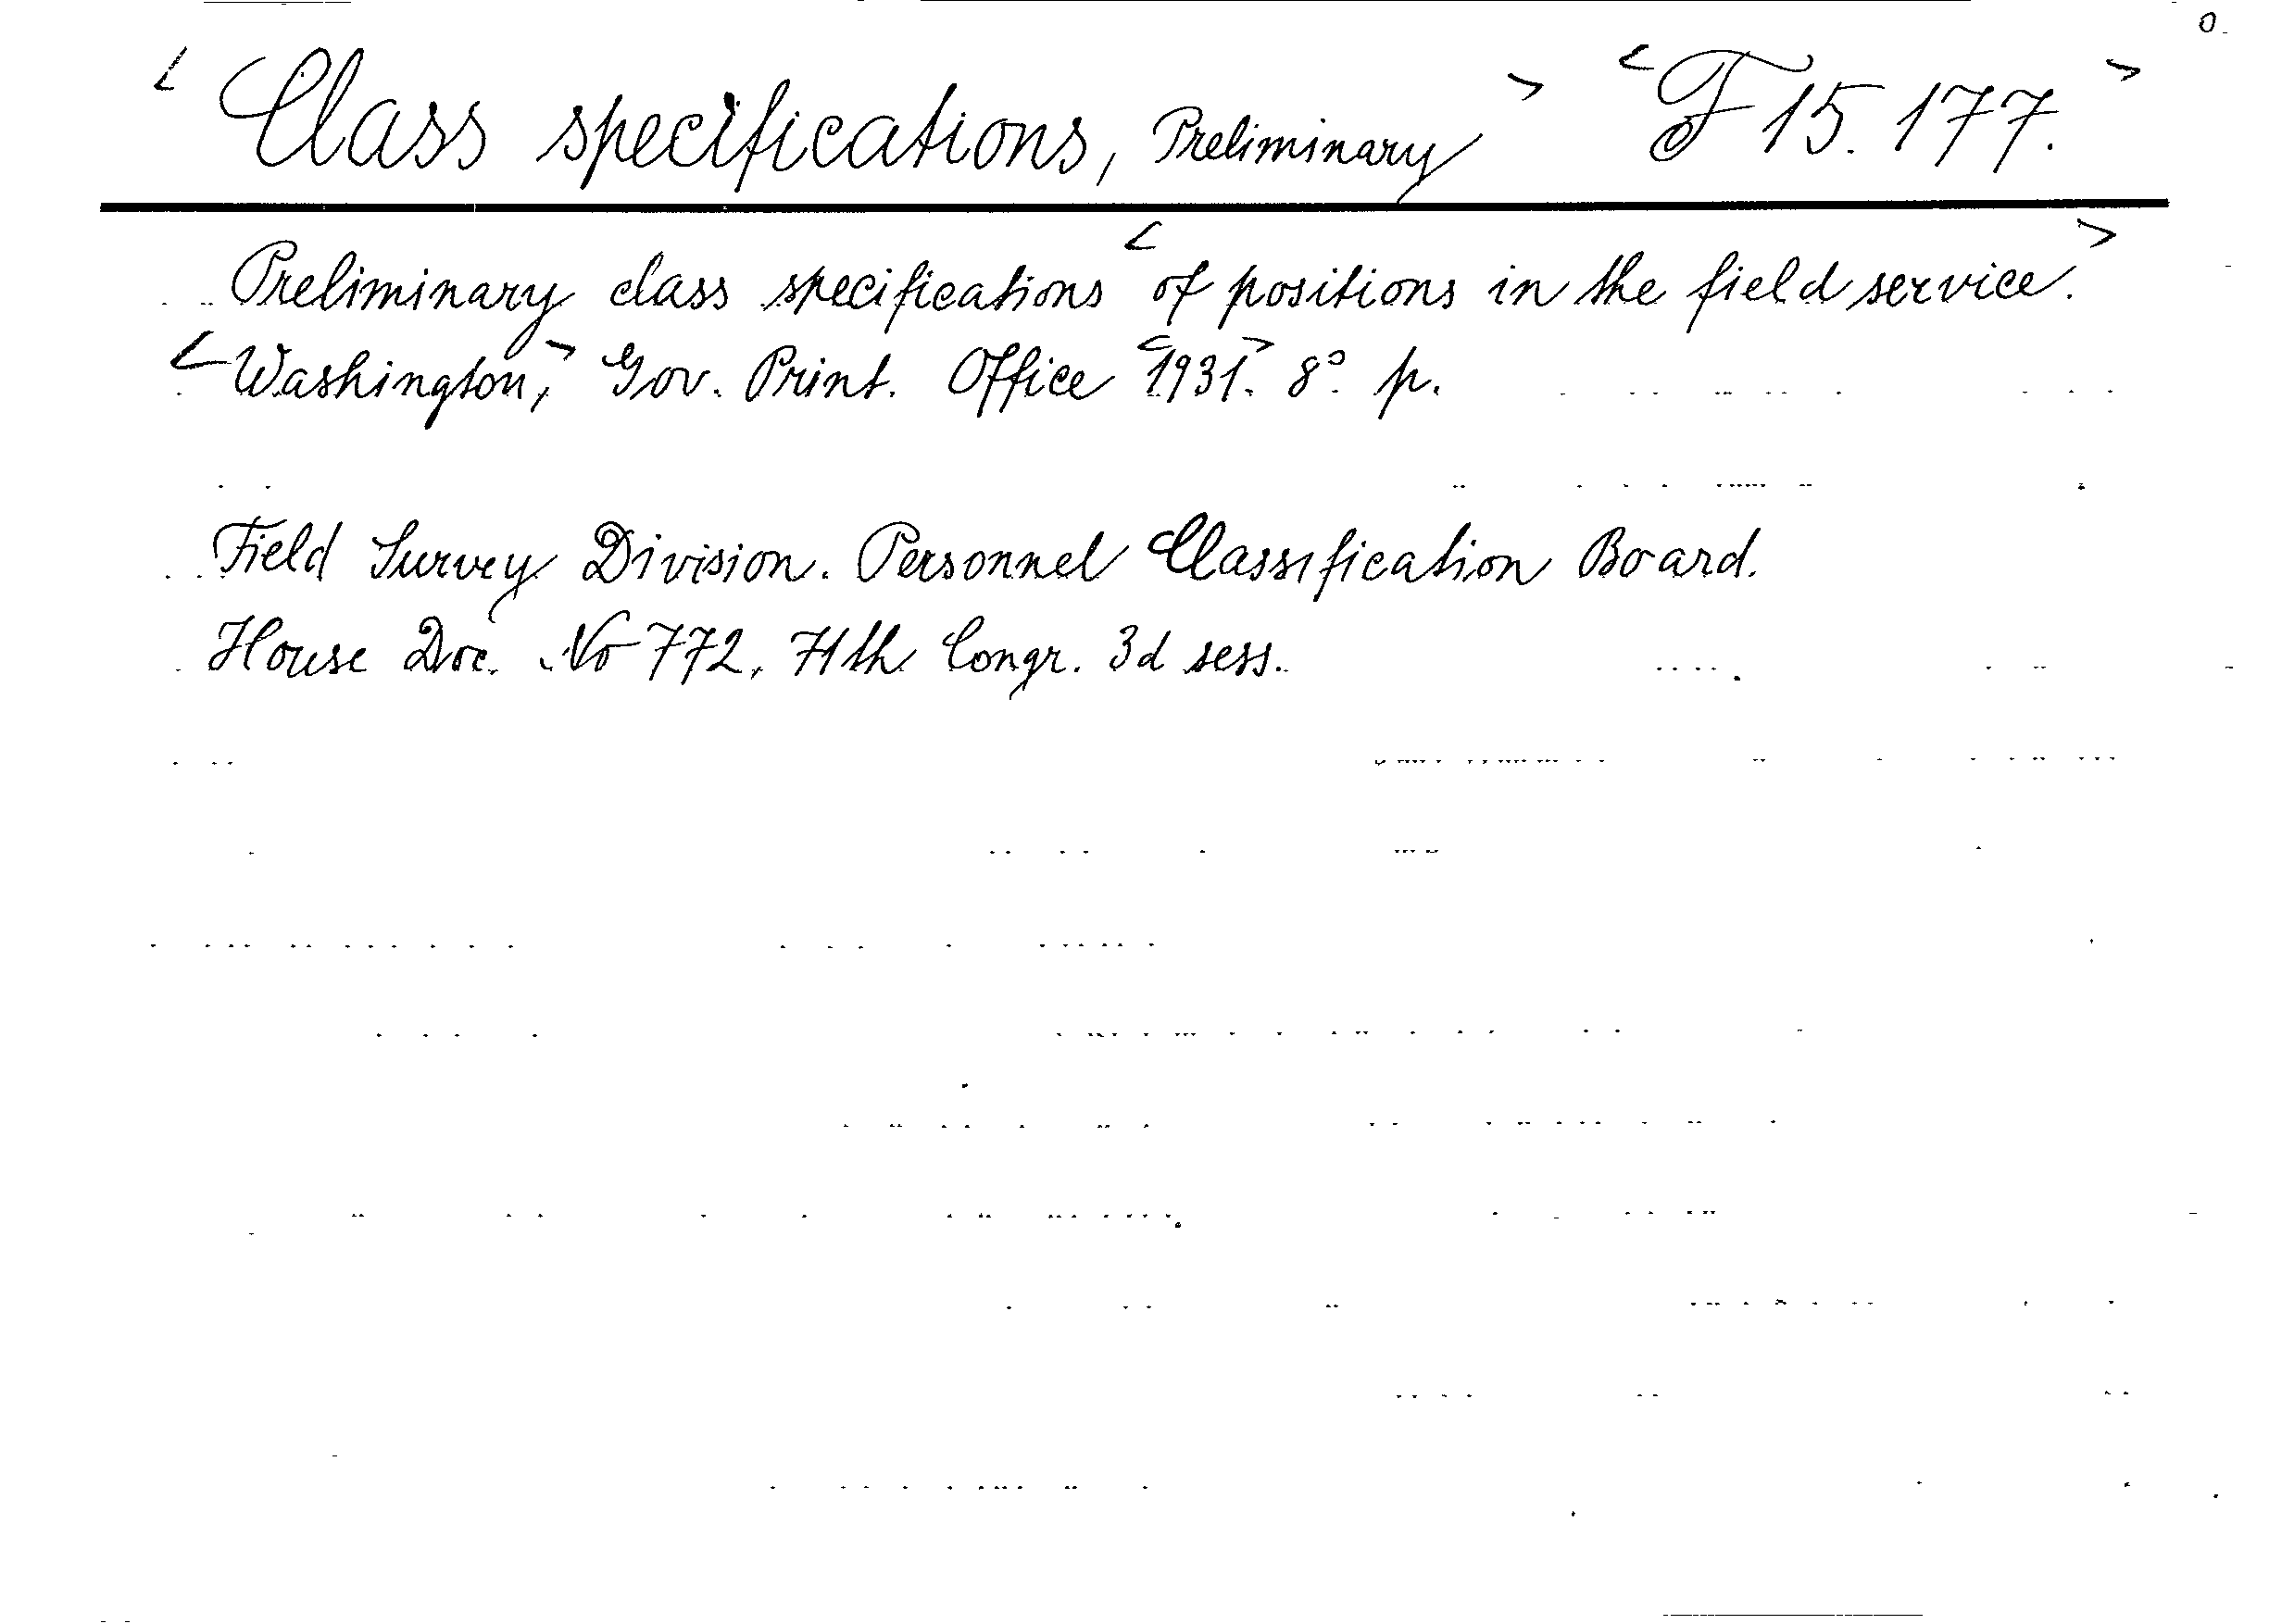 < Class specifications, Preliminary > < F 15. 177. >
Preliminary class specifications < of positions in the field service. >
< Washington, > Gov. Print. Office < 1931. > 8° p.
Field Survey Division. Personnel Classification Board.
House Doc. No 772, 71th Congr. 3d sess.